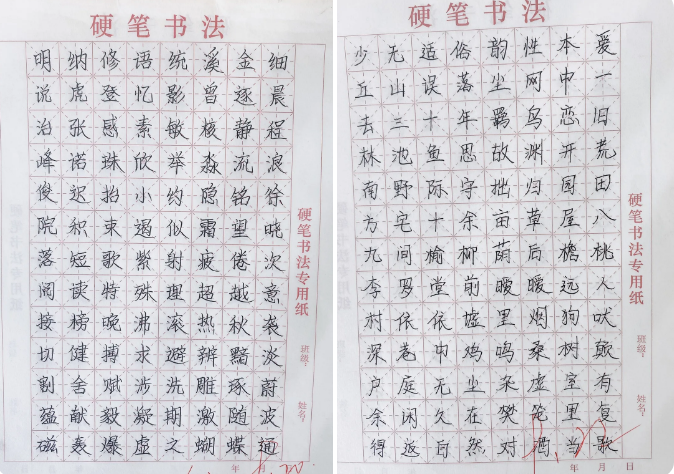 硬笔书法
明纳修语统溪金细
说虎登忆影曾逐晨
治张感素敏核静程
峰诺珠欣举淼流浪
俊迟抬小约隐铭徐
院积束遏似霜望晓
落短歌紫射疲倦次
阅读特殊理超越意
按榜晚沸滚热秋
切健搏求避辫黯淡
割舍赋涉洗雕琢蔚
蕴献毅凝期激随波
磁轰爆虚之蝴蝶通
硬笔书法专用纸
班级：
姓名：
年
硬笔书法
少无适俗韵性本爱
丘山误落尘网中一
去三十年羁鸟恋旧
林池鱼思故渊开荒
南野际守拙归园田
方宅十余亩草屋八
九间榆柳荫后檐桃
李罗堂前暧暧远人
村依依墟里烟狗吠
深巷中鸡鸣桑树颠
户庭无尘杂虚室有
余闲久在樊笼里复
得返自然对酒当歌
硬笔书法专用纸
班级：
姓名：
年 月 日